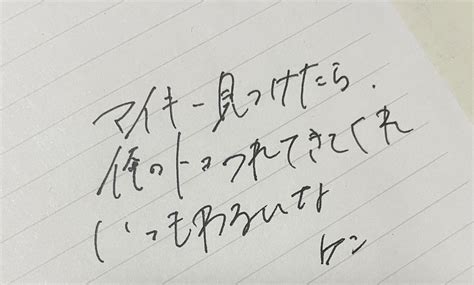 マイキー見つけたら、
俺のトコつれてきてくれ
いつもわるいな
ケン